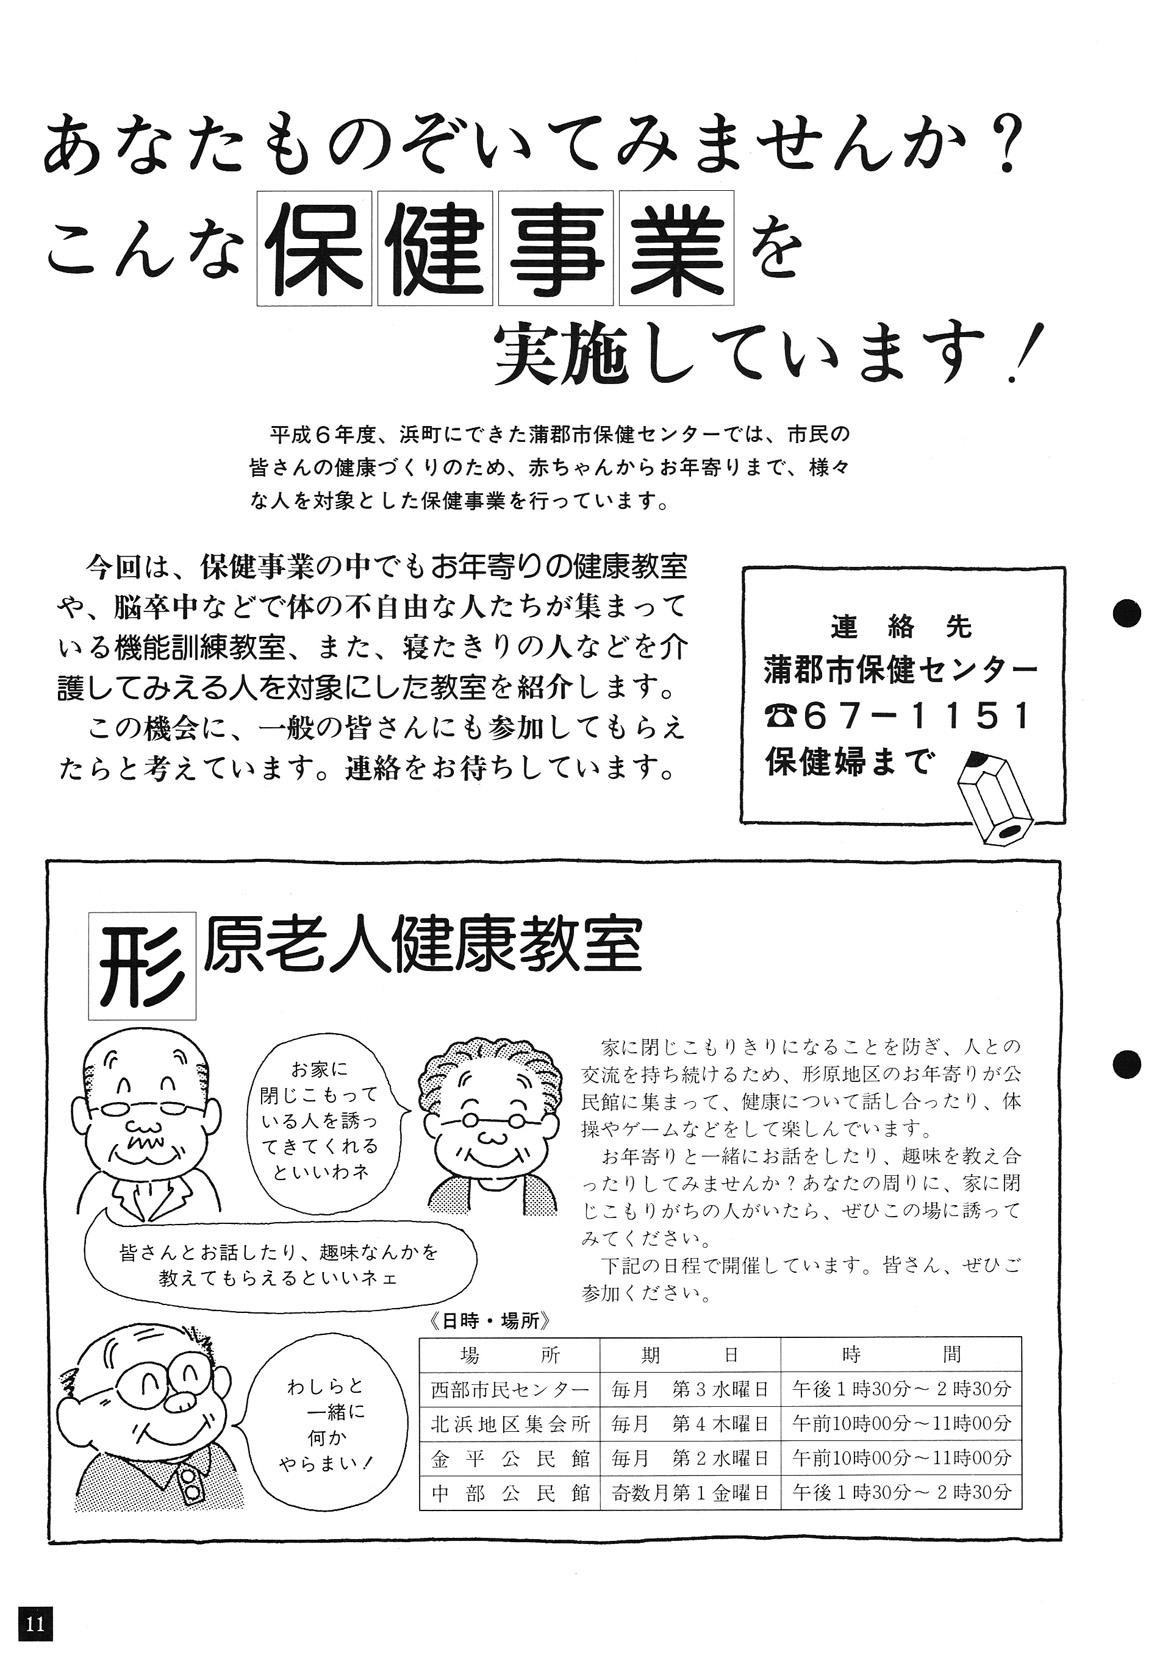 あなたものぞいてみませんか？
こんな保健事業を
実施しています！
平成６年度、浜町にできた蒲郡市保健センターでは、市民の
皆さんの健康づくりのため、赤ちゃんからお年寄りまで、様々
な人を対象とした保健事業を行っています。
今回は、保健事業の中でもお年寄りの健康教室
や、脳卒中などで体の不自由な人たちが集まって
いる機能訓練教室、また、寝たきりの人などを介
護してみえる人を対象にした教室を紹介します。
この機会に、一般の皆さんにも参加してもらえ
たらと考えています。連絡をお待ちしています。
連絡先
蒲郡市保健センター
☎６７－１１５１
保健婦まで
形原老人健康教室
お家に
閉じこもって
いる人を誘っ
てきてくれる
といいわネ
皆さんとお話したり、趣味なんかを
教えてもらえるといいネェ
わしらと
一緒に
何か
やらまい！
家に閉じこもりきりになることを防ぎ、人との
交流を持ち続けるため、形原地区のお年寄りが公
民館に集まって、健康について話し合ったり、体
操やゲームなどをして楽しんでいます。
お年寄りと一緒にお話をしたり、趣味を教え合
ったりしてみませんか？あなたの周りに、家に閉
じこもりがちの人がいたら、ぜひこの場に誘って
みてください。
下記の日程で開催しています。皆さん、ぜひご
参加ください。
《日時・場所》
場所 期日 時間
西部市民センター 毎月 第３水曜日 午後１時30分～２時30分
北浜地区集会所 毎月 第４木曜日 午前10時00分～11時00分
金平公民館 毎月 第２水曜日 午前10時00分～11時00分
中部公民館 奇数月第１金曜日 午後１時30分～２時30分
11